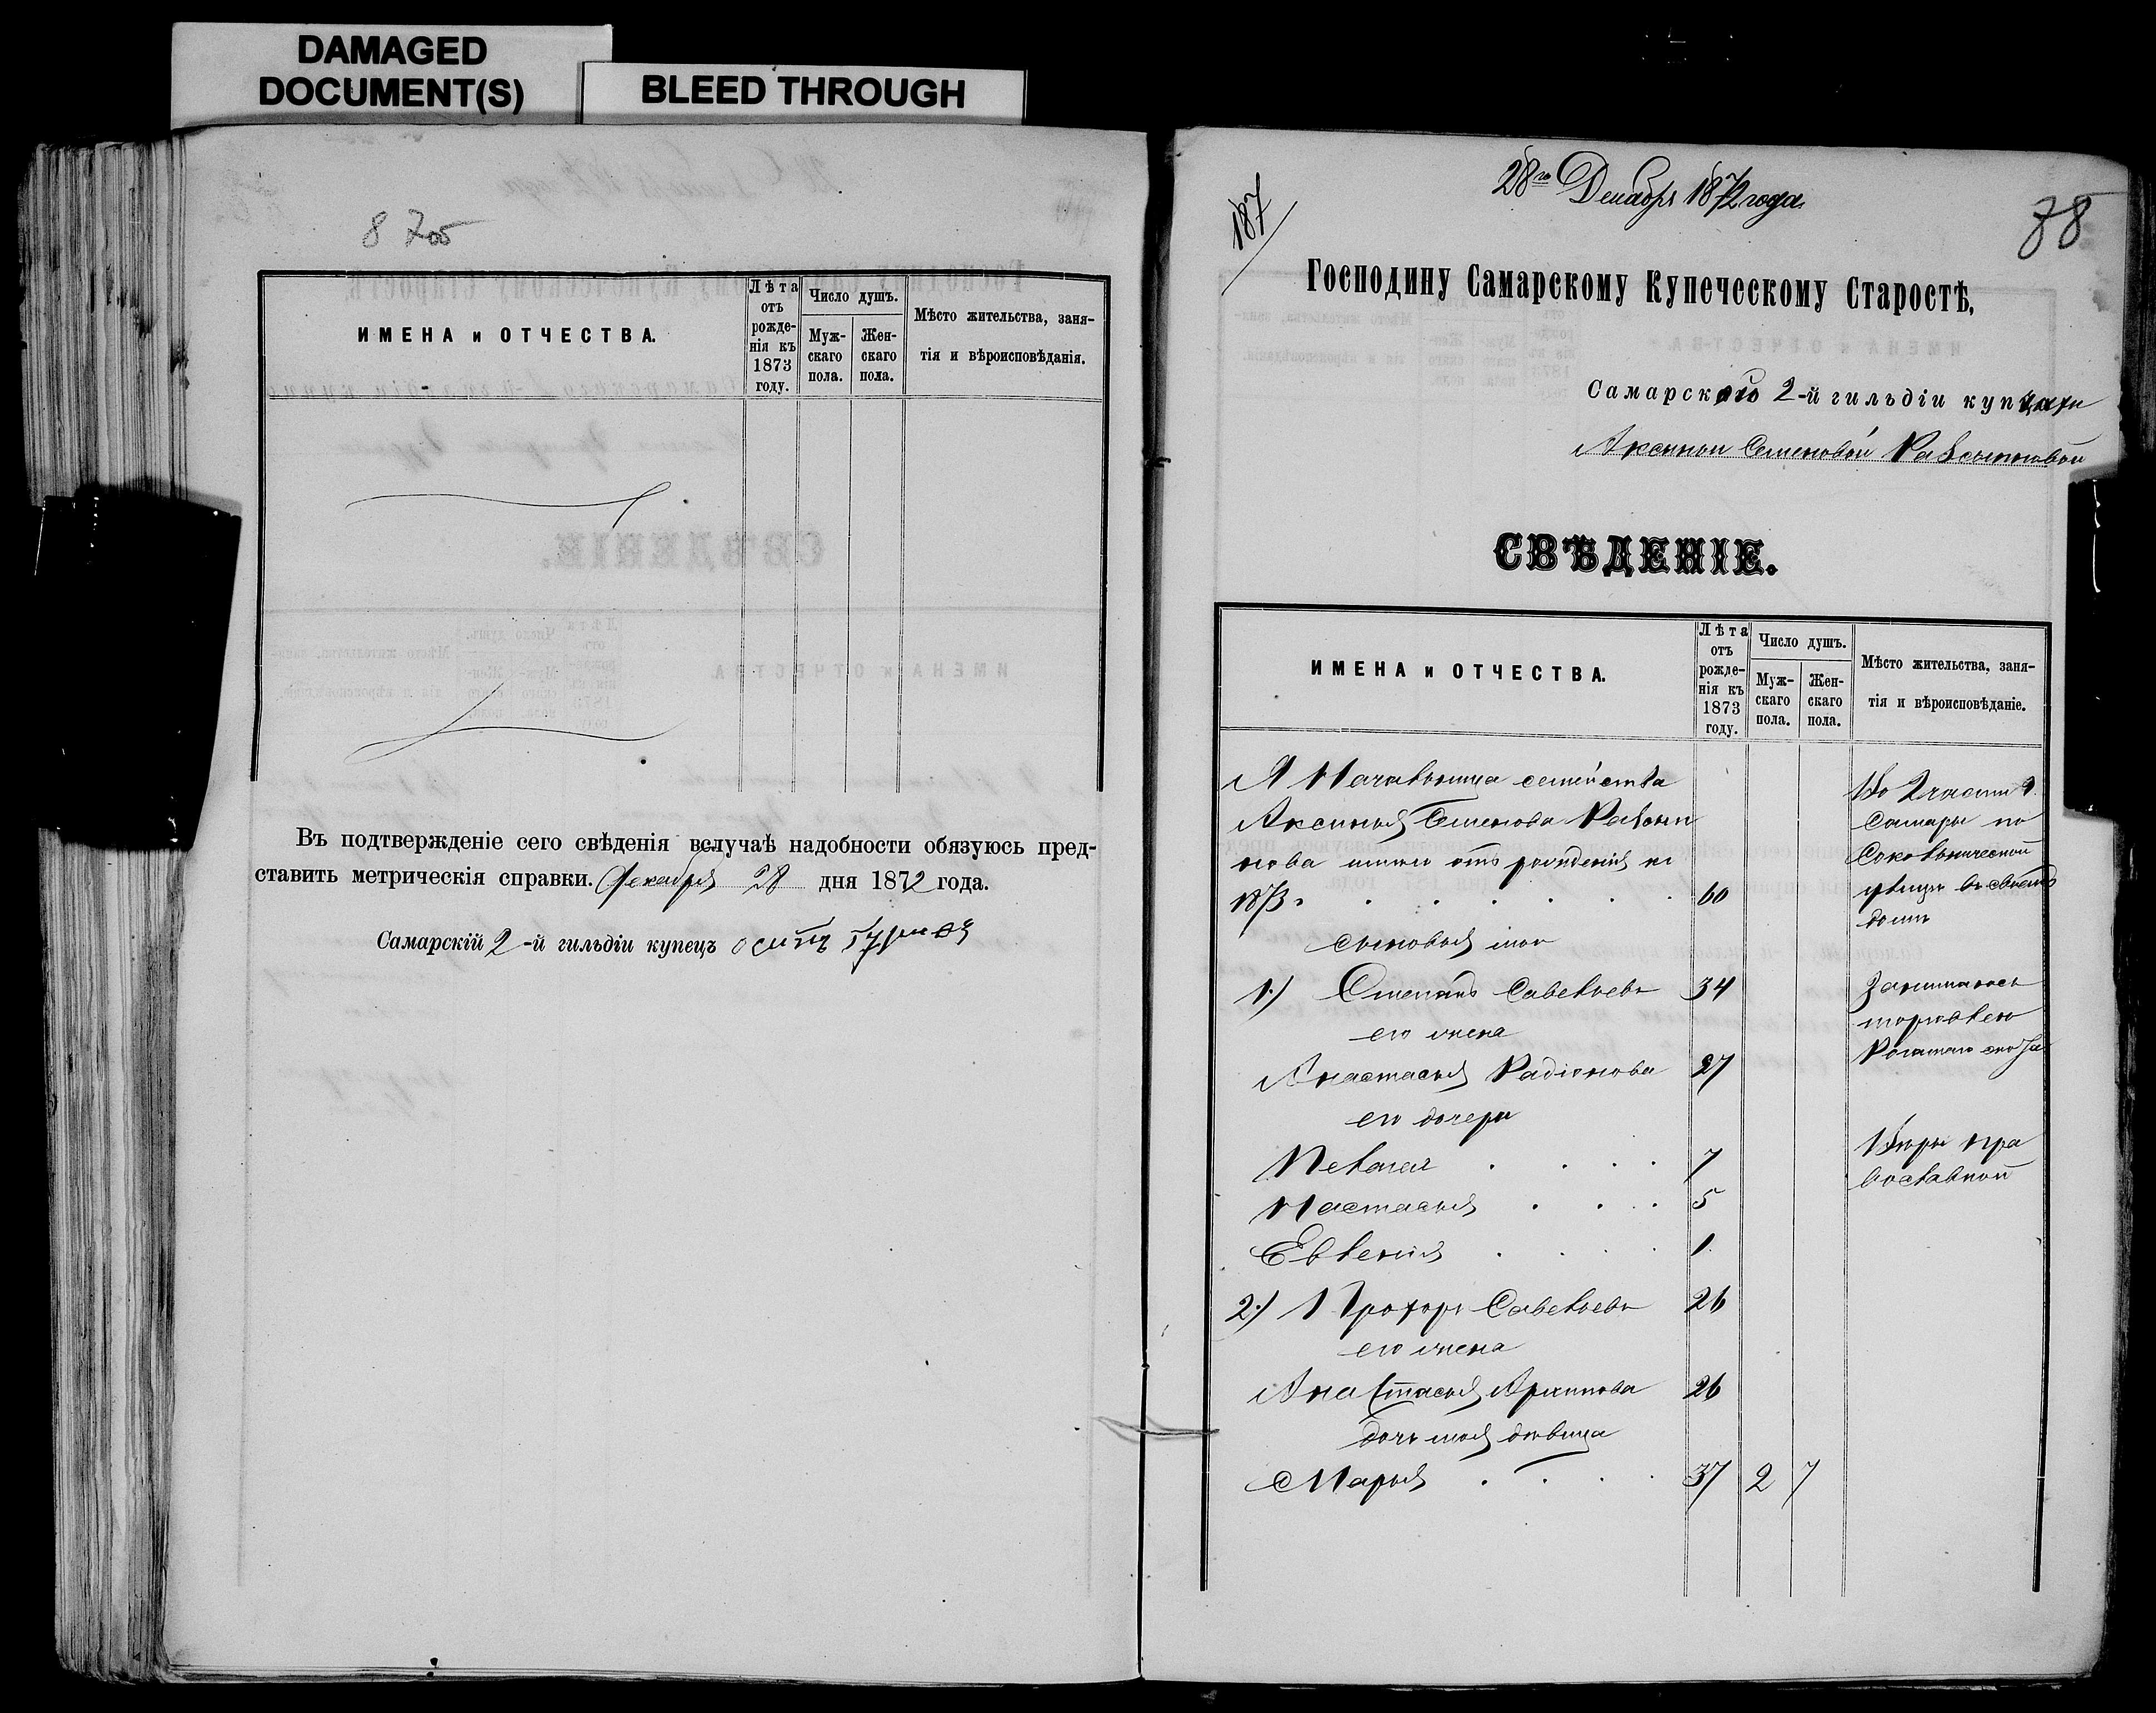 DAMAGED
DOCUMENT(S)
BLEED THROUGH
ИМЕНА и ОТЧЕСТВА.
Лѣта отъ рожденія къ 1873 году.
Число душъ.
Мужскаго пола.
Женскаго пола.
Мѣсто жительства, заня-
тія и вѣроисповѣданія.
Въ подтвержденіе сего свѣденія вслучаѣ надобности обязуюсь пред-
ставить метрическія справки. Декабря 28 дня 1872 года.
Самарскій 2-й гильдіи купецъ осипъ
187
28го Декабря 1872 года.
88
Господину Самарскому Купеческому Старостѣ,
Самарской 2-й гильдіи купчихи
Аксиньи Семеновой
СВѢДЕНІЕ.
ИМЕНА и ОТЧЕСТВА.
Лѣта отъ рожде-нія къ 1873 году.
Число душъ.
Муж-скаго пола.
Жен-скаго пола.
Мѣсто жительства, заня-
тія и вѣроисповѣданіе.
Я Начальница семейства
Аксинья Семенова
нова имѣю отъ рожденія къ
1873 г. 60
сыновья мои
1) Степанъ Савельевъ 34
его жена
Анастасья Радіонова 27
его дочери
Пелагея 7
Настасья 5
Евгенія 1
2) Прохоръ Савельевъ 26
его жена
Анастасья Архипова 26
дочь моя дѣвица
Марья 37 2 7
Во 2 части г.
Самары по
улицѣ въ своемъ
домѣ
Занимаюсь
торговлею
Рогатаго скота
Вѣры пра
вославной